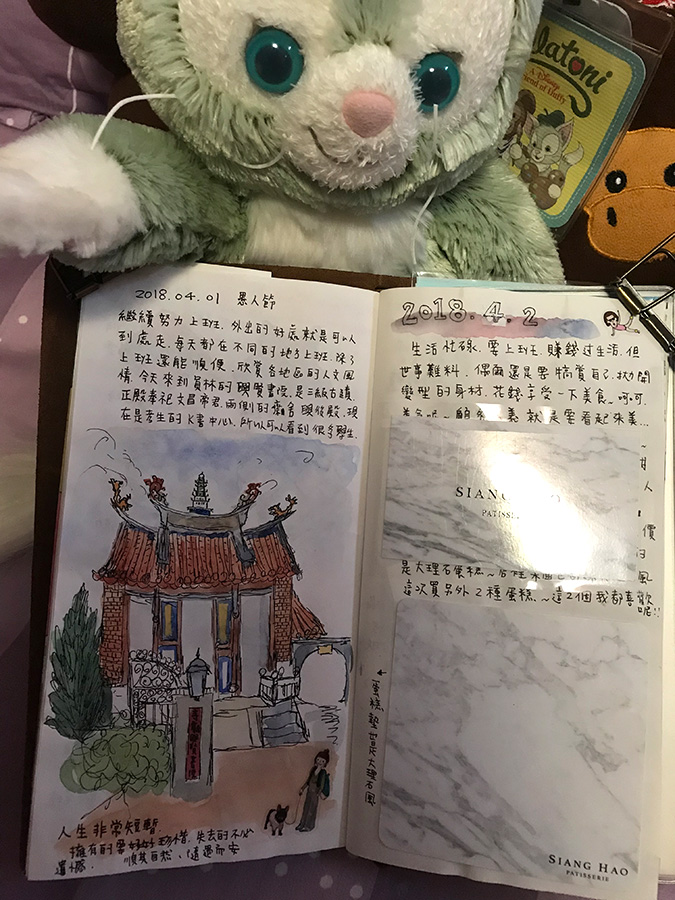 latoni
A Disney
friend of Duffy
2018.04.01 愚人節
繼續努力上班. 外出的好處就是可以
到處走, 每天都在不同的地方上班. 除了
上班還能順便, 欣賞各地區的人文風
情. 今天來到員林的興賢書院, 是三級古蹟.
正殿奉祀文昌帝君, 兩側的廂舍 現
在是考生的K書中心. 所以可以看到很多學生.
人生非常短暫
擁有的要好好珍惜, 失去的不必
遺憾. 順其自然、隨遇而安
2018.4.2
生活忙碌, 要上班. 賺錢过生活. 但
世事難料. 偶爾還是要犒賞自己. 拋開
的身材, 花錢享受一下美食~ 呵呵.
就是要看起來美...
SIANG HAO
PATISSE
是大理石蛋糕~
這次買另外2種蛋糕~這2個我都喜歡
呢!!
蛋糕墊也是大理石風
SIANG HAO
PATISSERIE